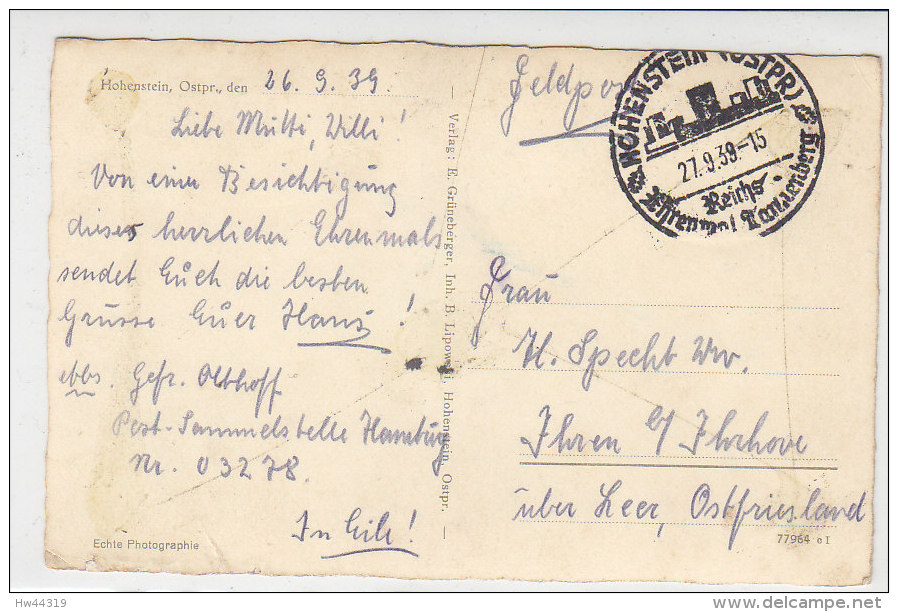 Hohenstein, Ostpr., den 26. 9. 39.
Liebe Mutti, Willi!
Von einer Besichtigung
dieses herrlichen Ehrenmals
sendet Euch die besten
Grüsse Euer Hans!
Gefr. Olthoff
Post-Sammelstelle Hamburg
Nr. 03278.
In Eile!
Echte Photographie
Verlag: E. Grüneberger, Inh. B. Lipowski, Hohenstein, Ostpr.
Feldpost
HOHENSTEIN (OSTPR)
27.9.39.-15
Reichs
Ehrenmal Tannenberg
Frau
H. Specht Wv.
Ihren b/ Ihrhove
über Leer, Ostfriesland
77964 e I
Hw44319
www.delcampe.net